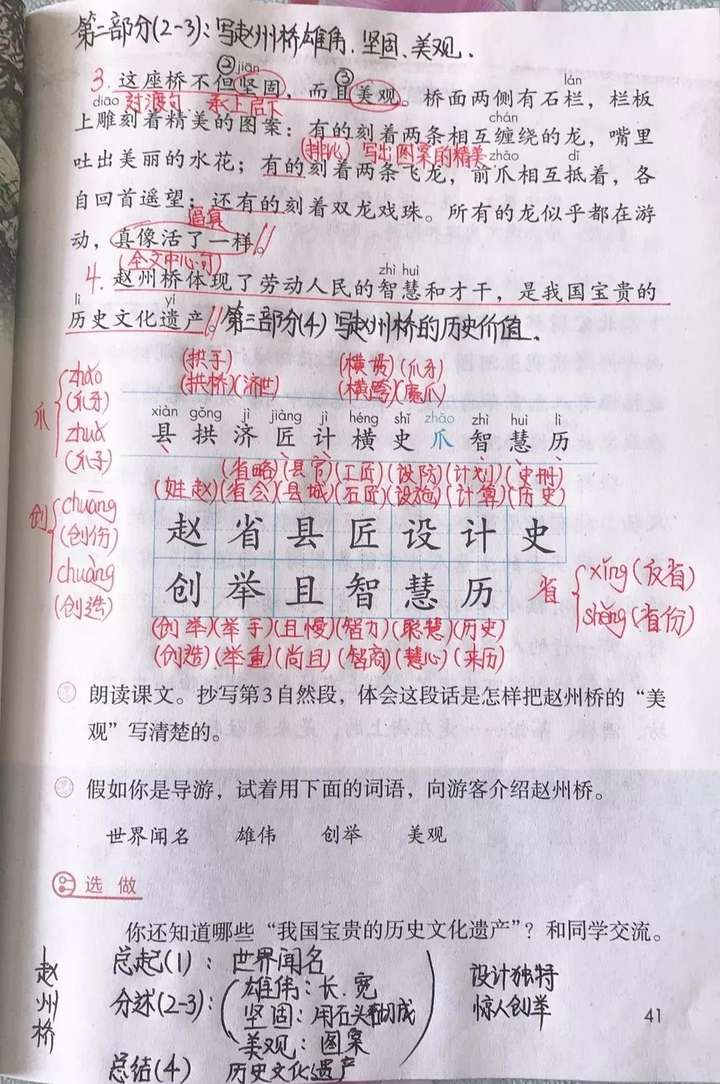 第二部分(2-3):写赵州桥雄伟、坚固、美观.
② jiān ③
3.这座桥不但坚固，而且美观。桥面两侧有石栏，栏板
lán
diāo 过渡句 承上启下
上雕刻着精美的图案：有的刻着两条相互缠绕的龙，嘴里
chán
(排比)写出图案的精美
吐出美丽的水花；有的刻着两条飞龙，前爪相互抵着，各
zhǎo dǐ
自回首遥望；还有的刻着双龙戏珠。所有的龙似乎都在游
逼真
动，真像活了一样。
(全文中心句)
zhì huì
4.赵州桥体现了劳动人民的智慧和才干，是我国宝贵的
lì yí
历史文化遗产。第三部分(4) 写赵州桥的历史价值.
爪 zhǎo (爪牙) zhuǎ (爪子)
(拱手) (横贯)(爪牙)
(拱桥)(济世) (横跨)(魔爪)
xiàn gǒng jì jiàng jì héng shǐ zhǎo zhì huì lì
县 拱 济 匠 计 横 史 爪 智 慧 历
(省略)(县官)(工匠)(设防)(计划)(史册)
(姓赵)(省会)(县城)(石匠)(设施)(计算)(历史)
赵 省 县 匠 设 计 史
创 举 且 智 慧 历
创 chuāng (创伤) chuàng (创造)
省 xǐng(反省) shěng(省份)
(创举)(举手)(且慢)(智力)(聪慧)(历史)
(创造)(举重)(尚且)(智商)(慧心)(来历)
朗读课文。抄写第3自然段，体会这段话是怎样把赵州桥的“美
观”写清楚的。
假如你是导游，试着用下面的词语，向游客介绍赵州桥。
世界闻名 雄伟 创举 美观
选做
你还知道哪些“我国宝贵的历史文化遗产”？和同学交流。
赵州桥
总起(1)：世界闻名
分述(2-3)：雄伟：长、宽
坚固：用石头砌成
美观：图案
总结(4) 历史文化遗产
设计独特
惊人创举
41